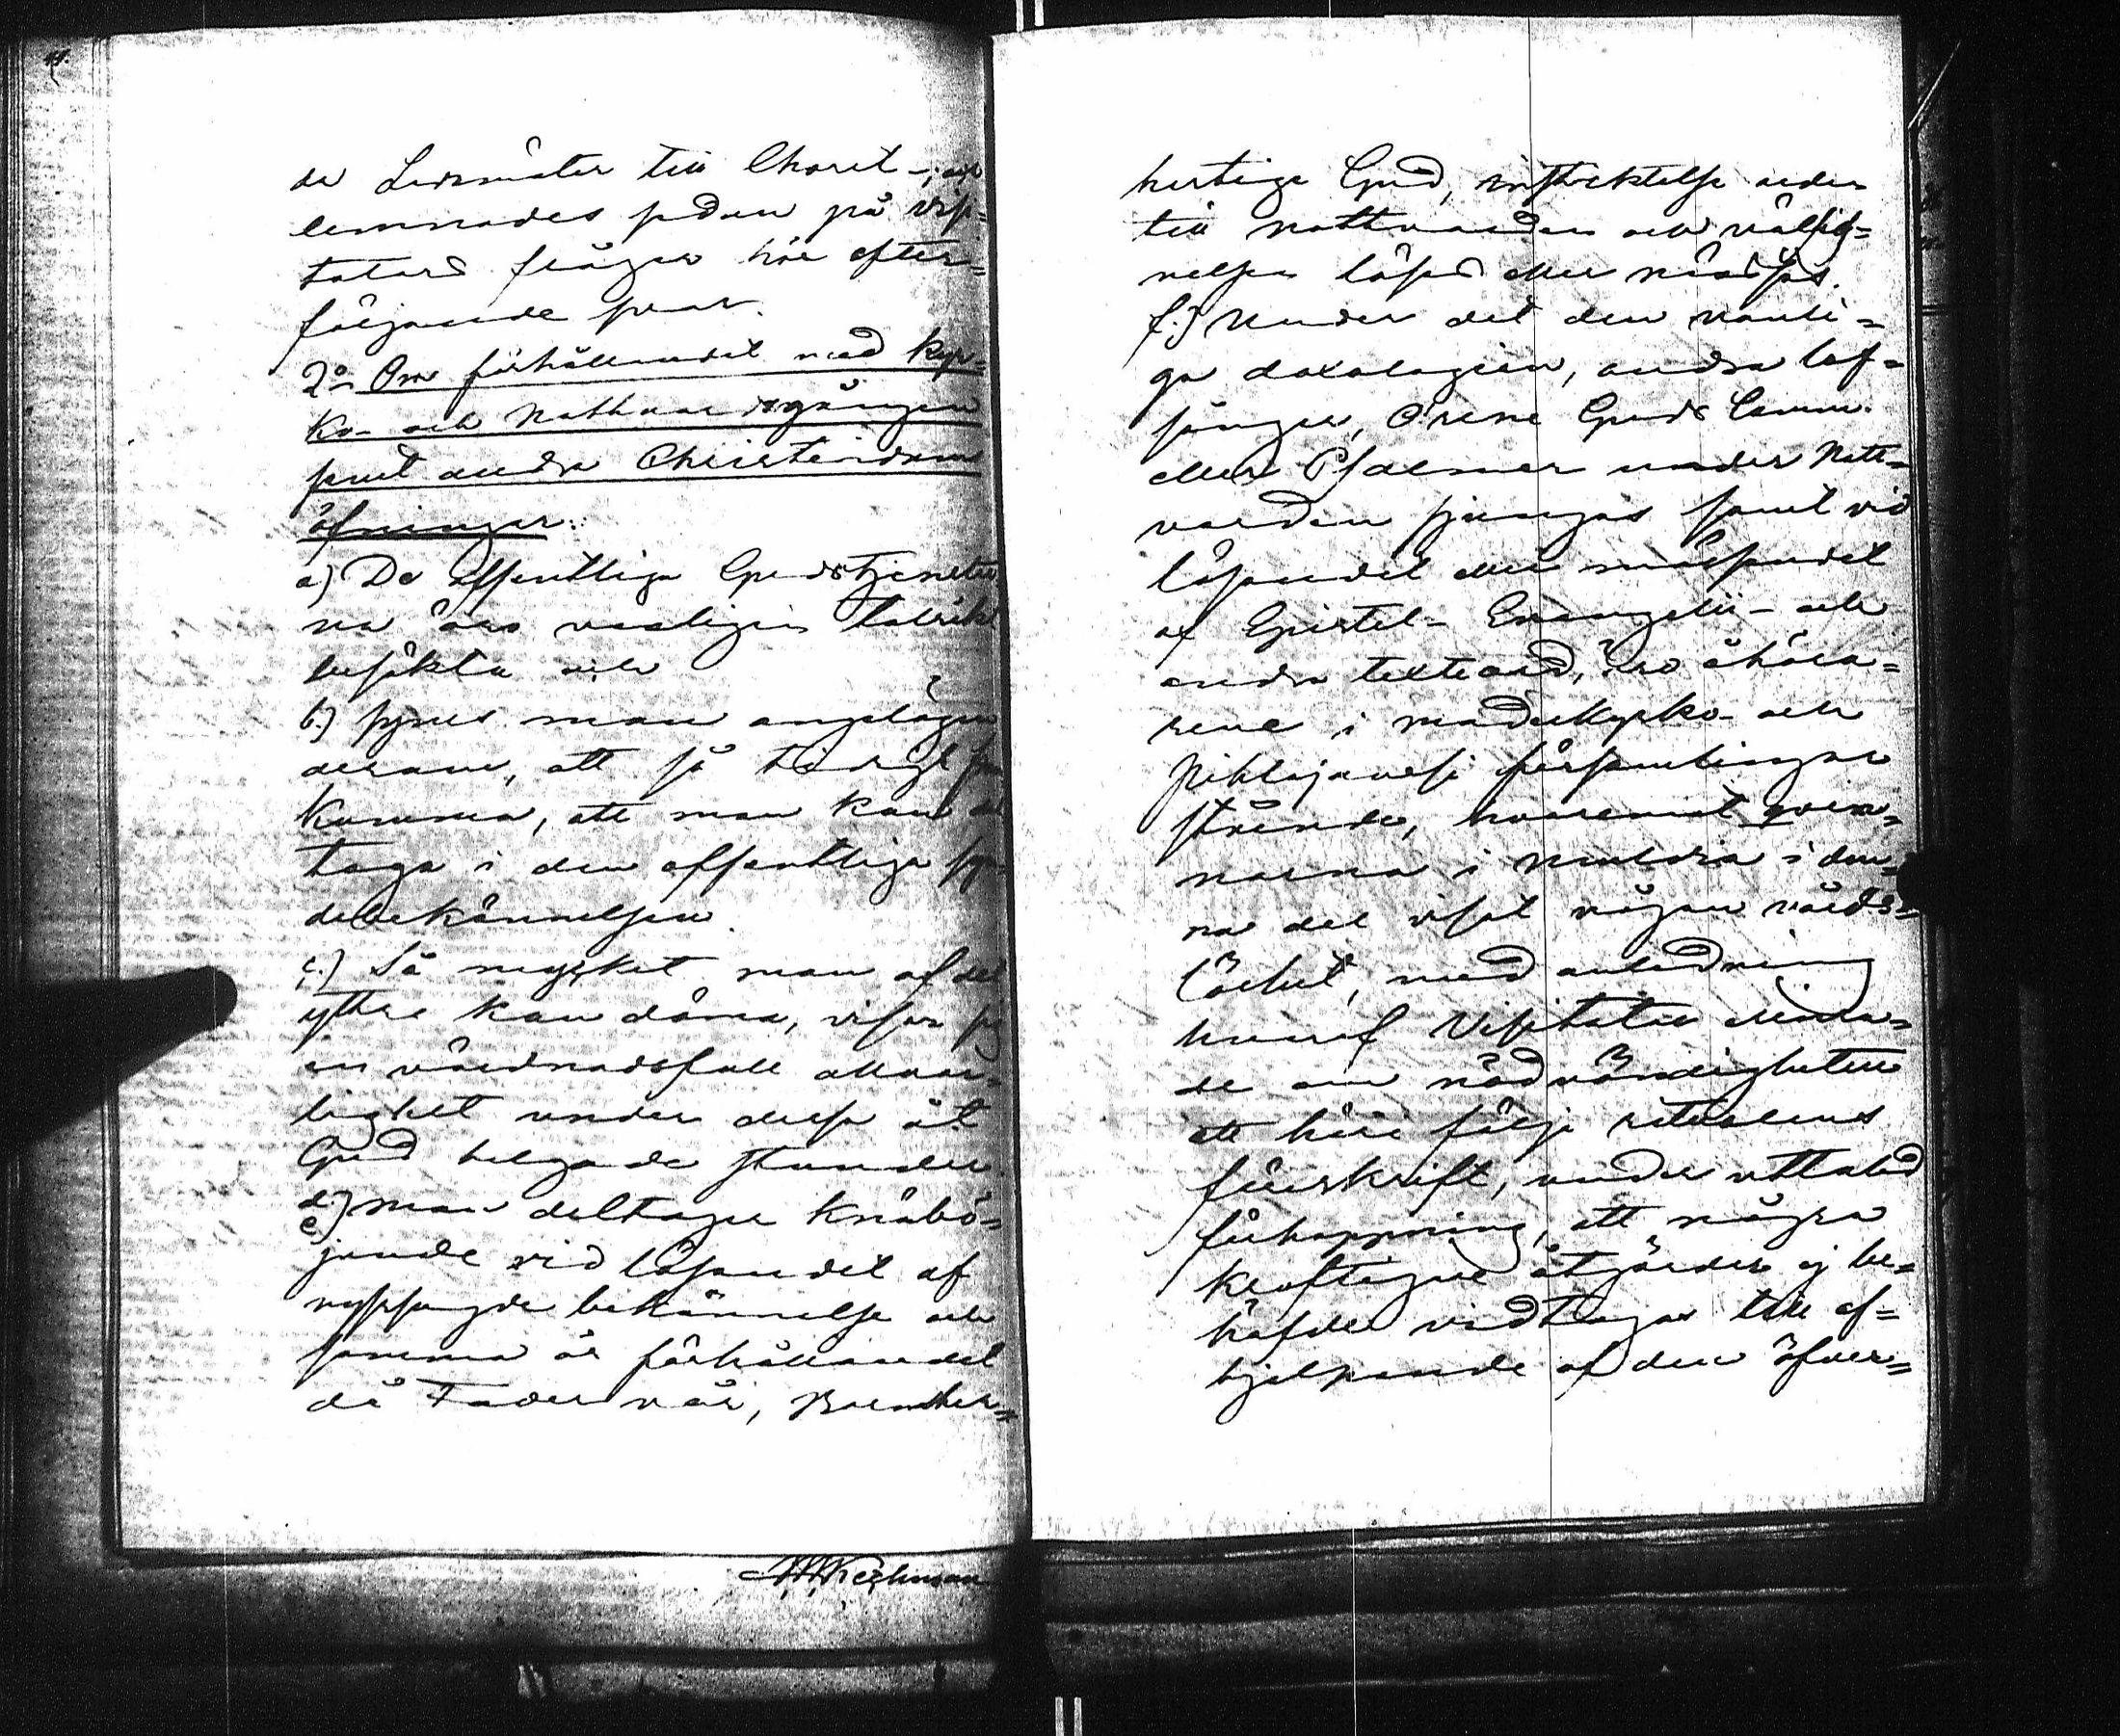 de Ledamöter till Choret-; och
lemnades sedan på Visi=
tators frågor här efter=
följande svar.
2o Om förhållandet med Kyr=
ko- och Nattvardsgången
samt andra Christendoms
öfningar:
a) De offentliga Gudstjenster
na äro vanligen talrikt
besökta och
b.) synes man angelägen
derom, att så tidigt
komma, att man kan del
taga i den offentliga syn=
dabekännelsen.
c.) Så mycket man af det
yttre kan döma, visar sig
en vördnadsfull allvar=
lighet under dessa åt
Gud helgade stunder.
d.) man deltager knäbö=
e.)
jande vid läsandet af
nysssagde bekännelse och
samma är förhållandet
då Fader vår, Barmher=
hertige Gud, instiktelse orden
till nattvarden och välsig=
nelsen läses eller mässas.
f.) Under det den vanli=
ga doxologien, andra lof=
sånger, O rene Guds Lamm
eller Psalmer under Natt=
varden sjungas samt vid
läsandet eller mässandet
af Epistel- Evangelii- och
andra texteord, äro åhöra=
rene i moderkyrko- och
Pihlajavesi församlingar
stående, hvaremot qvin=
norna i Multia i den=
na del visat någon vårds=
löshet, med anledning
hvaraf Visitator erinra=
de om nödvändigheten
att häri följa ritualens
föreskrift, under uttalad
förhoppning, att några
kraftigare åtgärder ej be=
höfde vidtagas till af=
hjelpande af den öfver=